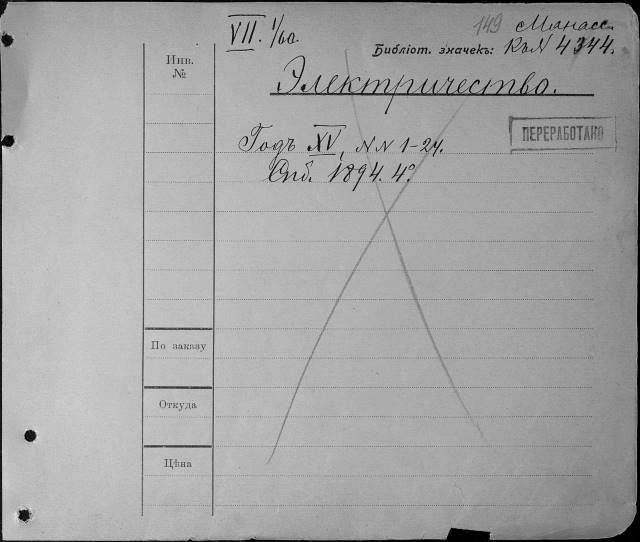 149 Манасс.
VII. 1/60.
Библіот. значекъ: Къ N 4344.
Инв.
№
Электричество.
ПЕРЕРАБОТАНО
Годъ XV, NN 1-24.
Спб. 1894. 4°.
По заказу
Откуда
Цѣна